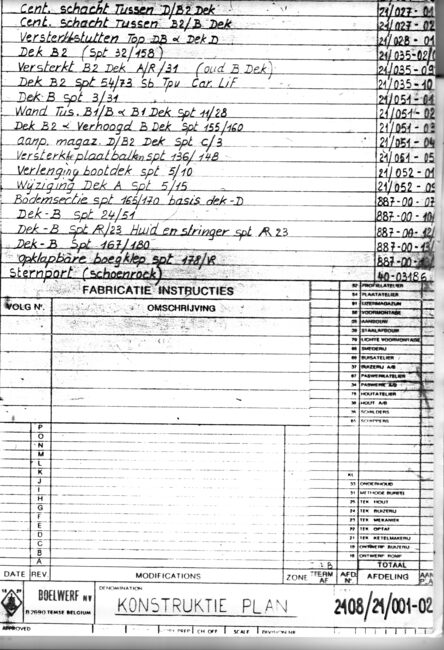 Cent. schacht Tussen D/B2 Dek 21/027-01
Cent. schacht Tussen B2/B Dek 21/027-02
Versterkstutten Top DB & Dek D 21/028-01
Dek B2 (Spt 32/158) 21/035-02/
Versterkt B2 Dek A/R/31 (oud B Dek) 21/035-09
Dek B2 Spt 54/73 Sb Tpv Car. Lif 21/035-10
Dek B Spt 3/31 21/051-01
Wand Tus. B1/B & B1 Dek Spt 11/28 21/051-02
Dek B2 & Verhoogd B Dek Spt 155/160 21/051-03
aanp. magaz. D/B2 Dek Spt C/3 21/051-04
Versterkte plaatbalken spt 136/148 21/061-05
Verlenging bootdek spt. 5/10 21/052-01
Wijziging Dek A Spt 5/15 21/052-09
Bodemsectie spt 165/170 basis dek-D 887-00-07
Dek-B Spt 24/51 887-00-10
Dek-B Spt A/23 Huid en stringer spt A 23 887-00-12/
Dek-B Spt 167/180 887-00-13/
opklapbare boegklep spt 178/VR 887-00-
Sternport (schoenrock) 40-03186
FABRICATIE INSTRUCTIES
VOLG Nr. OMSCHRIJVING
PROFIELATELIER
PLAATATELIER
IJZERMAGAZIJN
VOORMONTAGE
AANBOUW
STAALAFBOUW
LICHTE VOORMONTAGE
SMEDERIJ
BUISATELIER
BUIZERIJ A/B
PASWERKATELIER
PASWERK A/B
HOUTATELIER
HOUT A/B
SCHILDERS
SCHIPPERS
P
O
N
M
L
K
J
I
H
G
F
E
D
C
B
A
ONDERHOUD
METHODE BUREEL
TEK HOUT
TEK BUIZERIJ
TEK MEKANIEK
TEK OPTAF
TEK KETELMAKERIJ
ONTWERP BUIZERIJ
ONTWERP ROMP
TOTAAL
DATE REV. MODIFICATIONS ZONE TERM AF AFD. Nr. AFDELING
BOELWERF NV
B 2690 TEMSE BELGIUM
DENOMINATION
KONSTRUKTIE PLAN
2108/21/001-02
APPROVED CH OFF SCALE